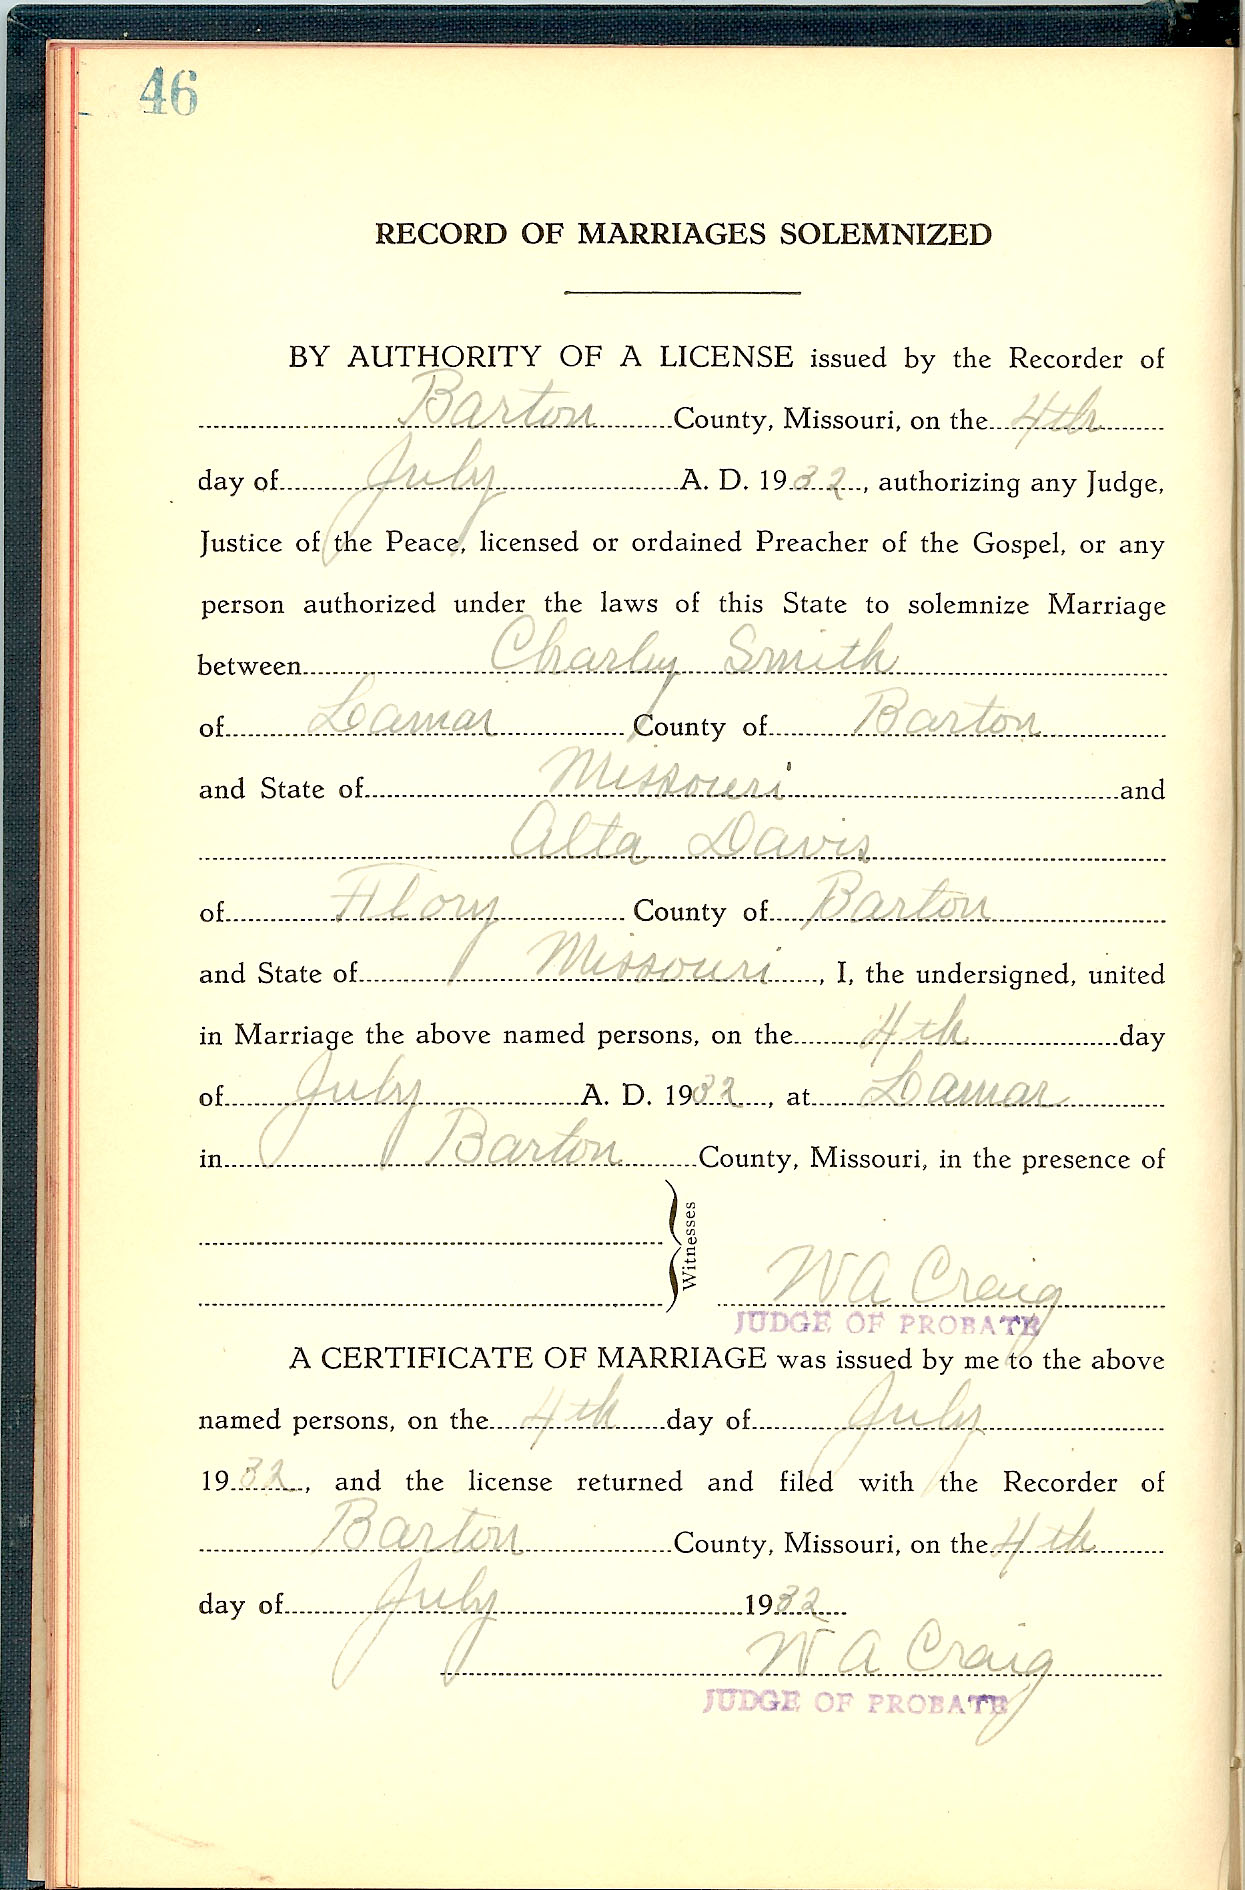 46
RECORD OF MARRIAGES SOLEMNIZED
BY AUTHORITY OF A LICENSE issued by the Recorder of
Barton County, Missouri, on the 4th
day of July A. D. 1932, authorizing any Judge,
Justice of the Peace, licensed or ordained Preacher of the Gospel, or any
person authorized under the laws of this State to solemnize Marriage
between Charley Smith
of Lamar County of Barton
and State of Missouri and
Alta Davis
of Flory County of Barton
and State of Missouri, I, the undersigned, united
in Marriage the above named persons, on the 4th day
of July A. D. 1932, at Lamar
in Barton County, Missouri, in the presence of
Witnesses
W A Craig
JUDGE OF PROBATE
A CERTIFICATE OF MARRIAGE was issued by me to the above
named persons, on the 4th day of July
1932, and the license returned and filed with the Recorder of
Barton County, Missouri, on the 4th
day of July 1932
W A Craig
JUDGE OF PROBATE